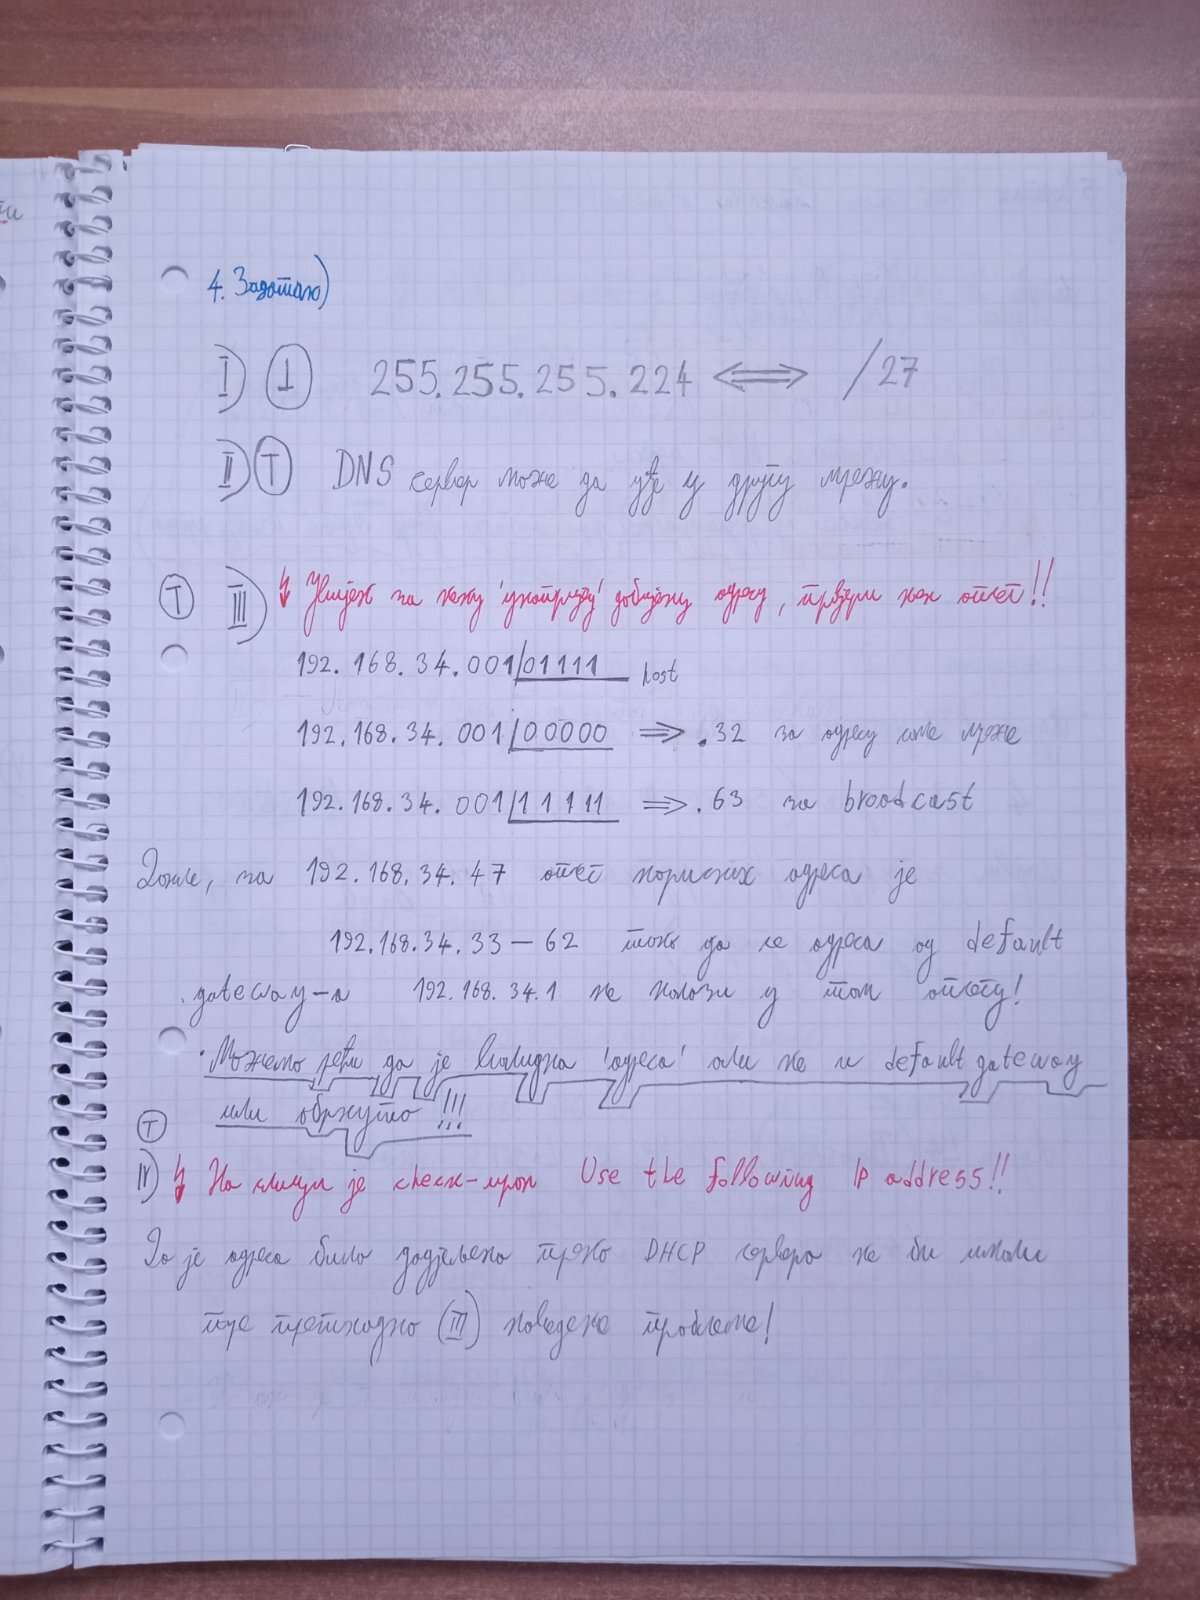 4. Задатак)
I) ⊥ 255.255.255.224 ⟺ /27
II) T DNS сервер може да уђе у другу мрежу.
T III) Увијек за неку 'унапријед' добијену адресу, провјери њен опсег!!
192.168.34.001/01111 host
192.168.34.001/00000 ⇒ .32 за адресу саме мреже
192.168.34.001/11111 ⇒ .63 за broadcast
Дакле, за 192.168.34.47 опсег корисних адреса је
192.168.34.33 – 62 тако да се адреса од default
gateway-а 192.168.34.1 не налази у том опсегу!
• Можемо рећи да је валидна 'адреса' али не и default gateway
или обрнуто !!!
T
IV) На слици је check-иран Use the following IP address!!
Да је адреса била додјељена преко DHCP сервера не би имали
претходно (III) наведене проблеме!